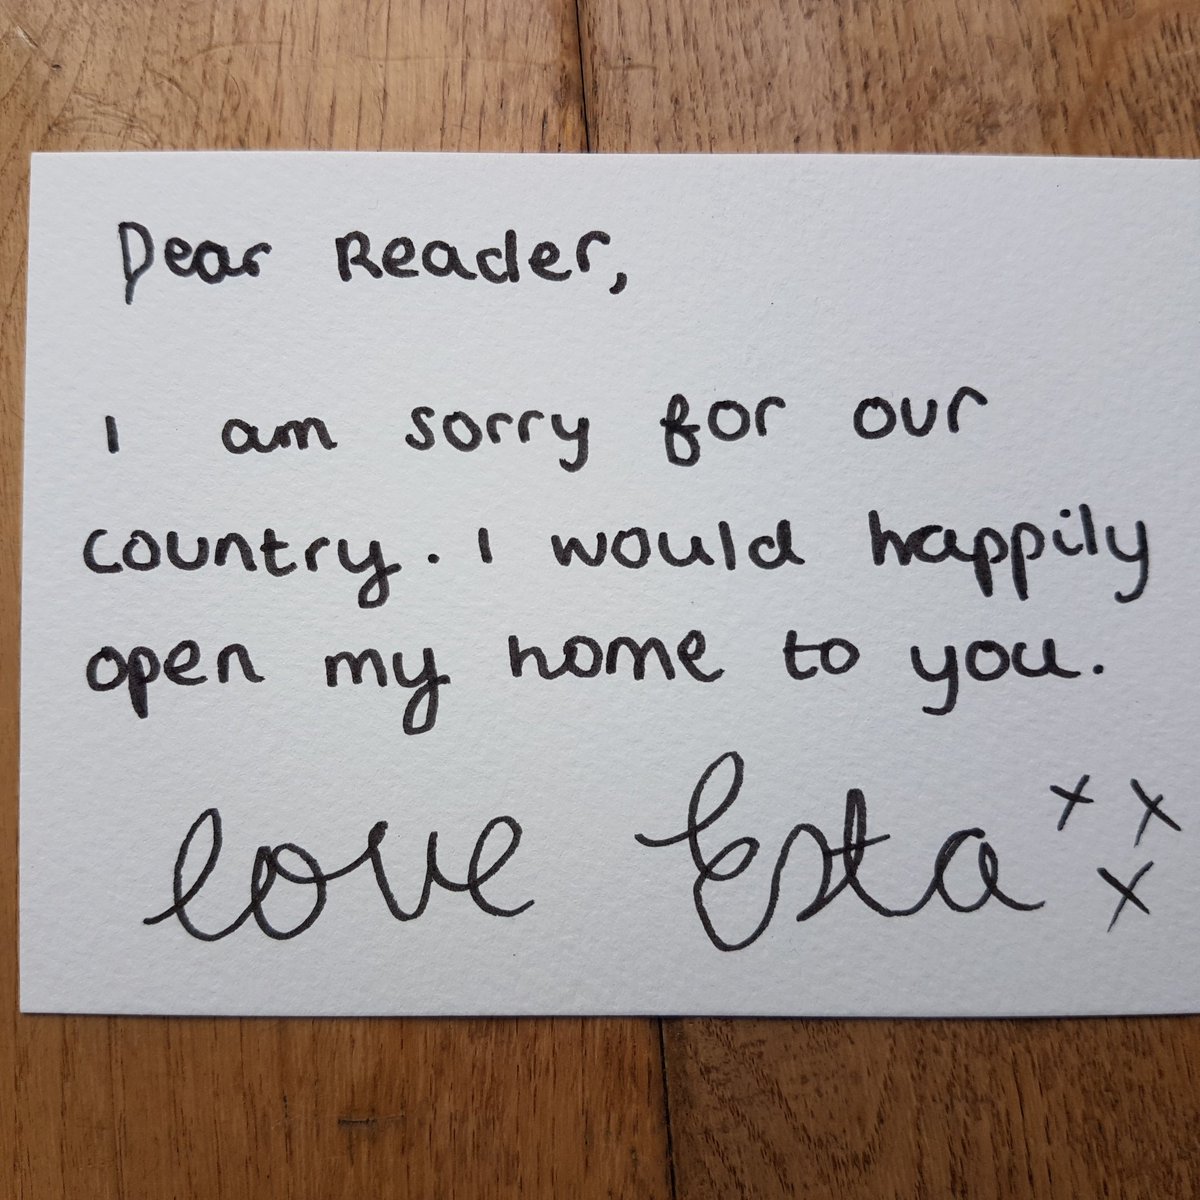 Dear Reader,
I am sorry for our
country. I would happily
open my home to you.
love Esta x x
x